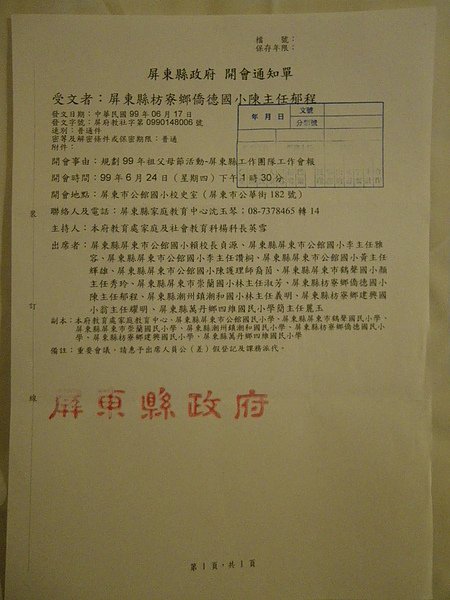 檔　　號：
保存年限：
屏東縣政府 開會通知單
受文者：屏東縣枋寮鄉僑德國小陳主任郁程
發文日期：中華民國99年06月17日
發文字號：屏府教社字第0990148006號
速別：普通件
密等及解密條件或保密期限：普通
附件：
年 月 日
文號
分類號
開會事由：規劃99年祖父母節活動-屏東縣工作團隊工作會報
開會時間：99年6月24日（星期四）下午1時30分
開會地點：屏東市公館國小校史室（屏東市公華街182號）
聯絡人及電話：屏東縣家庭教育中心沈玉琴：08-7378465轉14
主持人：本府教育處家庭及社會教育科楊科長英雪
出席者：屏東縣屏東市公館國小賴校長貞源、屏東縣屏東市公館國小李主任雅
容、屏東縣屏東市公館國小李主任譜桐、屏東縣屏東市公館國小黃主任
輝雄、屏東縣屏東市公館國小陳護理師裔茵、屏東縣屏東市鶴聲國小顏
主任秀玲、屏東縣屏東市崇蘭國小林主任淑芳、屏東縣枋寮鄉僑德國小
陳主任郁程、屏東縣潮州鎮潮和國小林主任義明、屏東縣枋寮鄉建興國
小翁主任耀明、屏東縣萬丹鄉四維國民小學簡主任麗玉
副本：本府教育處家庭教育中心、屏東縣屏東市公館國民小學、屏東縣屏東市鶴聲國民小學、
屏東縣屏東市崇蘭國民小學、屏東縣潮州鎮潮和國民小學、屏東縣枋寮鄉僑德國民小
學、屏東縣枋寮鄉建興國民小學、屏東縣萬丹鄉四維國民小學
備註：重要會議，請惠予出席人員公（差）假登記及課務派代。
裝
訂
線
屏東縣政府
第1頁，共1頁